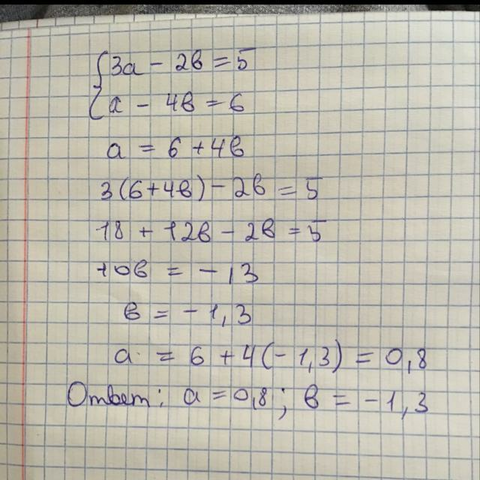 {3a - 2в = 5
{a - 4в = 6
a = 6 + 4в
3(6+4в) - 2в = 5
18 + 12в - 2в = 5
10в = - 13
в = - 1,3
a = 6 + 4(- 1,3) = 0,8
Ответ: a = 0,8 ; в = - 1,3